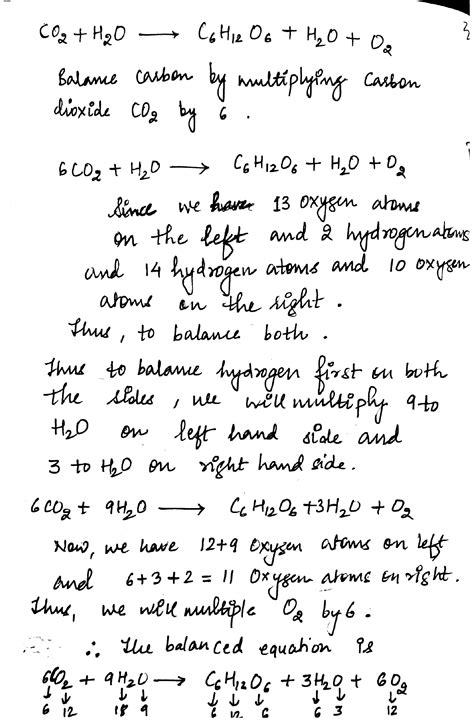 CO2 + H2O ⟶ C6H12O6 + H2O + O2
Balance Carbon by multiplying Carbon
dioxide CO2 by 6 .
6CO2 + H2O ⟶ C6H12O6 + H2O + O2
Since we have 13 oxygen atoms
on the left and 2 hydrogen atoms
and 14 hydrogen atoms and 10 oxygen
atoms on the right .
Thus , to balance both .
Thus to balance hydrogen first on both
the sides , we will multiply 9 to
H2O on left hand side and
3 to H2O on right hand side .
6CO2 + 9H2O ⟶ C6H12O6 + 3H2O + O2
Now, we have 12+9 Oxygen atoms on left
and 6+3+2 = 11 Oxygen atoms on right .
Thus, we will multiple O2 by 6 .
∴ The balanced equation is
6CO2 + 9H2O ⟶ C6H12O6 + 3H2O + 6O2
↓ ↓ ↓ ↓ ↓ ↓ ↓ ↓ ↓ ↓
6 12 18 9 6 12 6 6 3 12